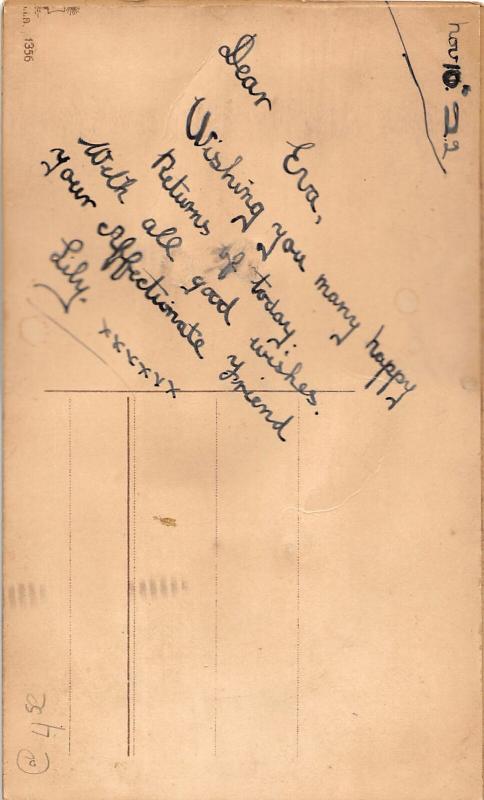 Nov 10. 22
Dear Eva,
Wishing you many happy
Returns of today.
With all good wishes.
your Affectionate friend
Lily.
xxxxxx
1356